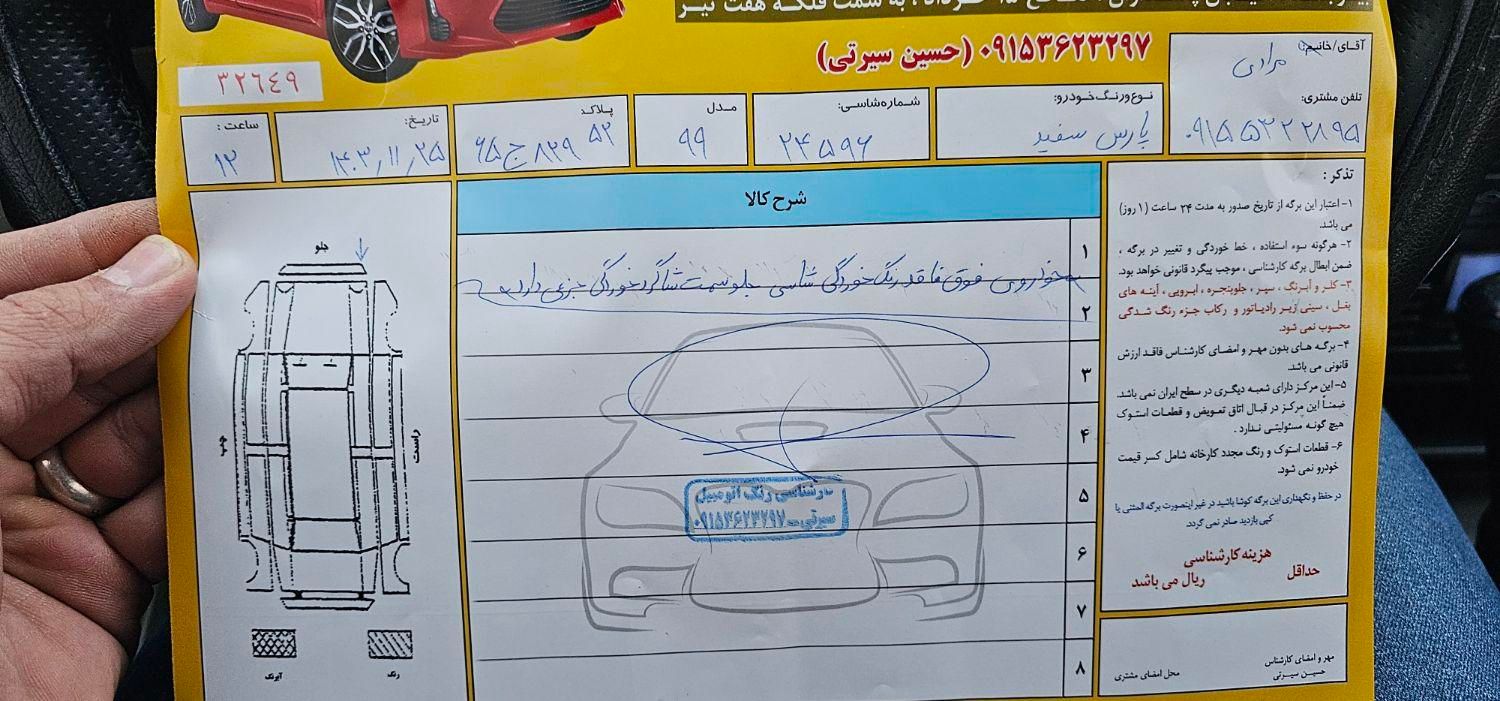 ۰۹۱۵۳۶۲۳۲۹۷ (حسین سیرتی)
۳۲۶۴۹
آقای/خانم:
مرادی
تلفن مشتری:
۰۹۱۵۵۳۲۲۸۹۵
نوع ورنگ خودرو:
پارس سفید
شماره شاسی:
۲۴۵۹۶
مدل
۹۹
پلاک
۵۲ ۸۲۹ ج ۶۵
تاریخ:
۱۴۰۳/۱۱/۲۵
ساعت:
۱۲
شرح کالا
۱
خودروی فوق فاقد رنگ خوردگی شاسی جلو سمت شاگرد خوردگی جزئی دارد
۲
۳
۴
۵
۶
۷
۸
کارشناسی رنگ اتومبیل
سیرتی-۰۹۱۵۳۶۲۳۲۹۷
جلو
چپ
راست
آبرنگ
رنگ
تذکر:
۱- اعتبار این برگه از تاریخ صدور به مدت ۲۴ ساعت (۱ روز)
می باشد.
۲- هرگونه سوء استفاده ، خط خوردگی و تغییر در برگه ،
ضمن ابطال برگه کارشناسی ، موجب پیگرد قانونی خواهد بود.
۳- گلر و آبرنگ ، سپر ، جلوپنجره ، ابرویی ، آینه های
بغل ، سینی زیر رادیاتور و رکاب جزء رنگ شدگی
محسوب نمی شود.
۴- برگه های بدون مهر و امضای کارشناس فاقد ارزش
قانونی می باشد.
۵- این مرکز دارای شعبه دیگری در سطح ایران نمی باشد.
ضمناً این مرکز در قبال اتاق تعویض و قطعات استوک
هیچ گونه مسئولیتی ندارد.
۶- قطعات استوک و رنگ مجدد کارخانه شامل کسر قیمت
خودرو نمی شود.
در حفظ و نگهداری این برگه کوشا باشید در غیر اینصورت برگه المثنی یا
کپی بازدید صادر نمی گردد.
هزینه کارشناسی
حداقل ریال می باشد
مهر و امضای کارشناس
حسین سیرتی
محل امضای مشتری